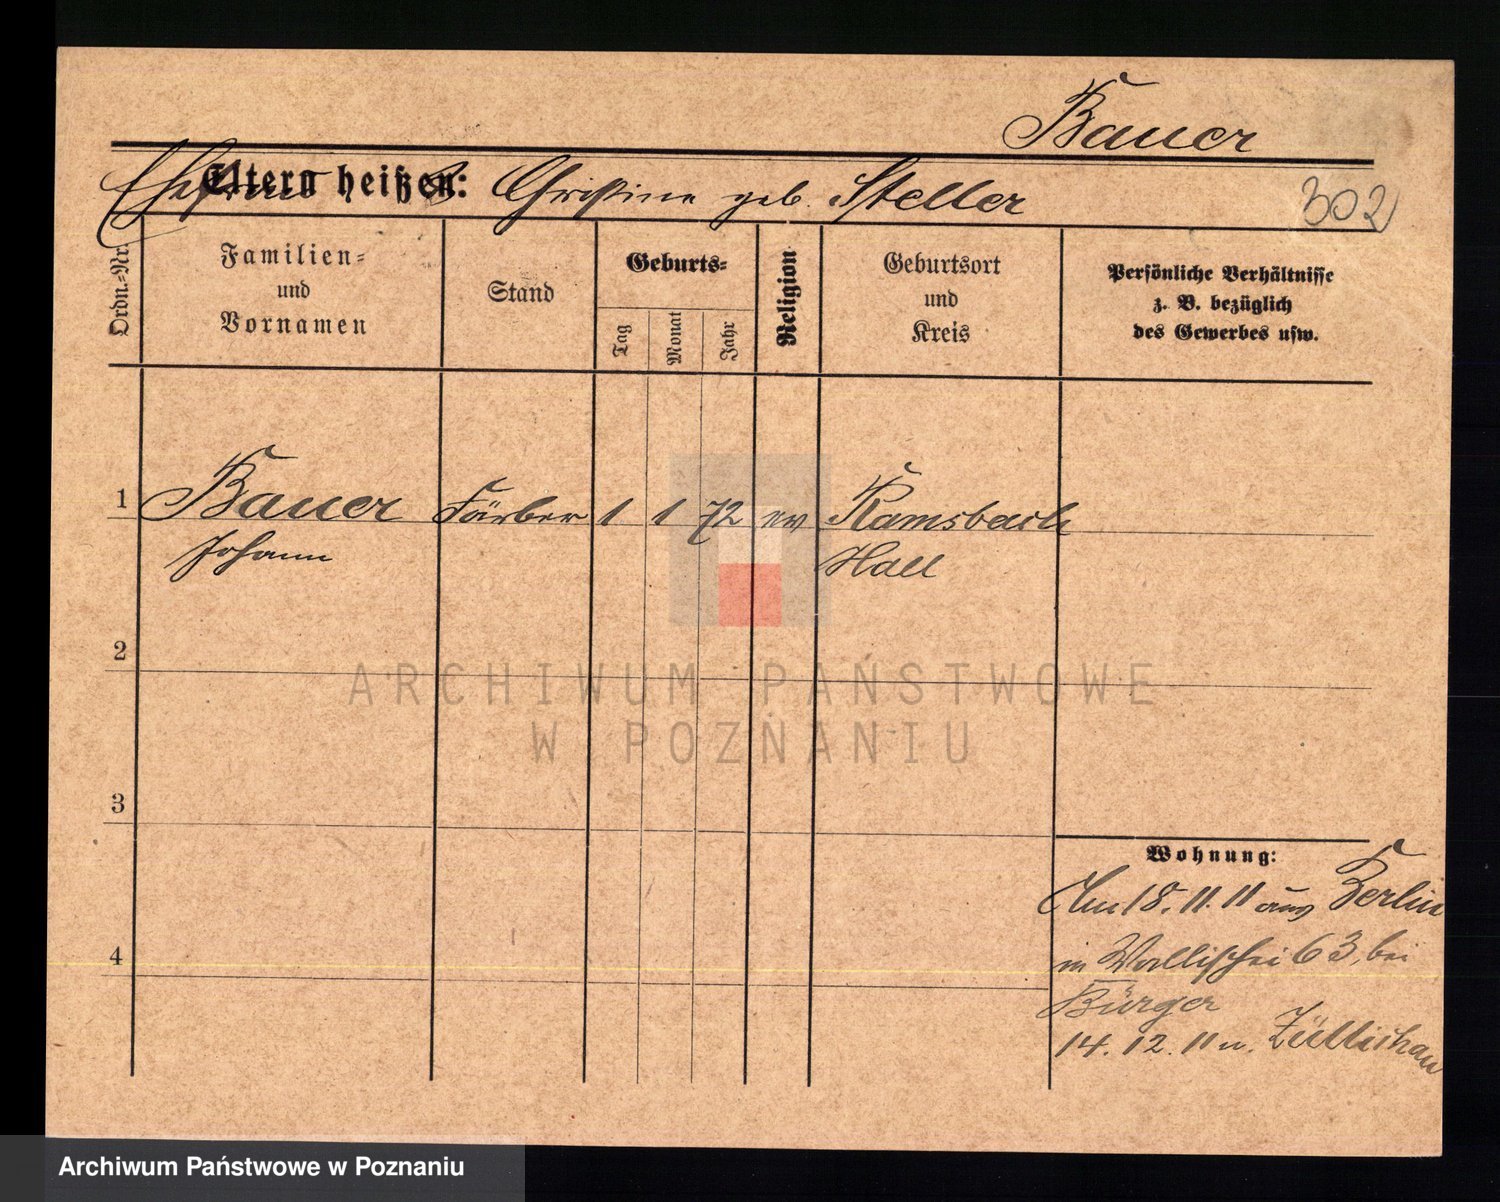 Bauer
Eltern heißen: Christine geb. Steller
302
Ordn.-Nr.
Familien-
und
Vornamen
Stand
Geburts-
Tag
Monat
Jahr
Religion
Geburtsort
und
Kreis
Persönliche Verhältnisse
z. B. bezüglich
des Gewerbes usw.
1 Bauer Färber 1 1 72 ev Ramsbach
Johann Hall
2
3
4
Wohnung:
Am 18. 11. 11 aus Berlin
in Wallischei 63, bei
Bürger
14. 12. 11 n. Züllichau
ARCHIWUM PAŃSTWOWE
W POZNANIU
Archiwum Państwowe w Poznaniu